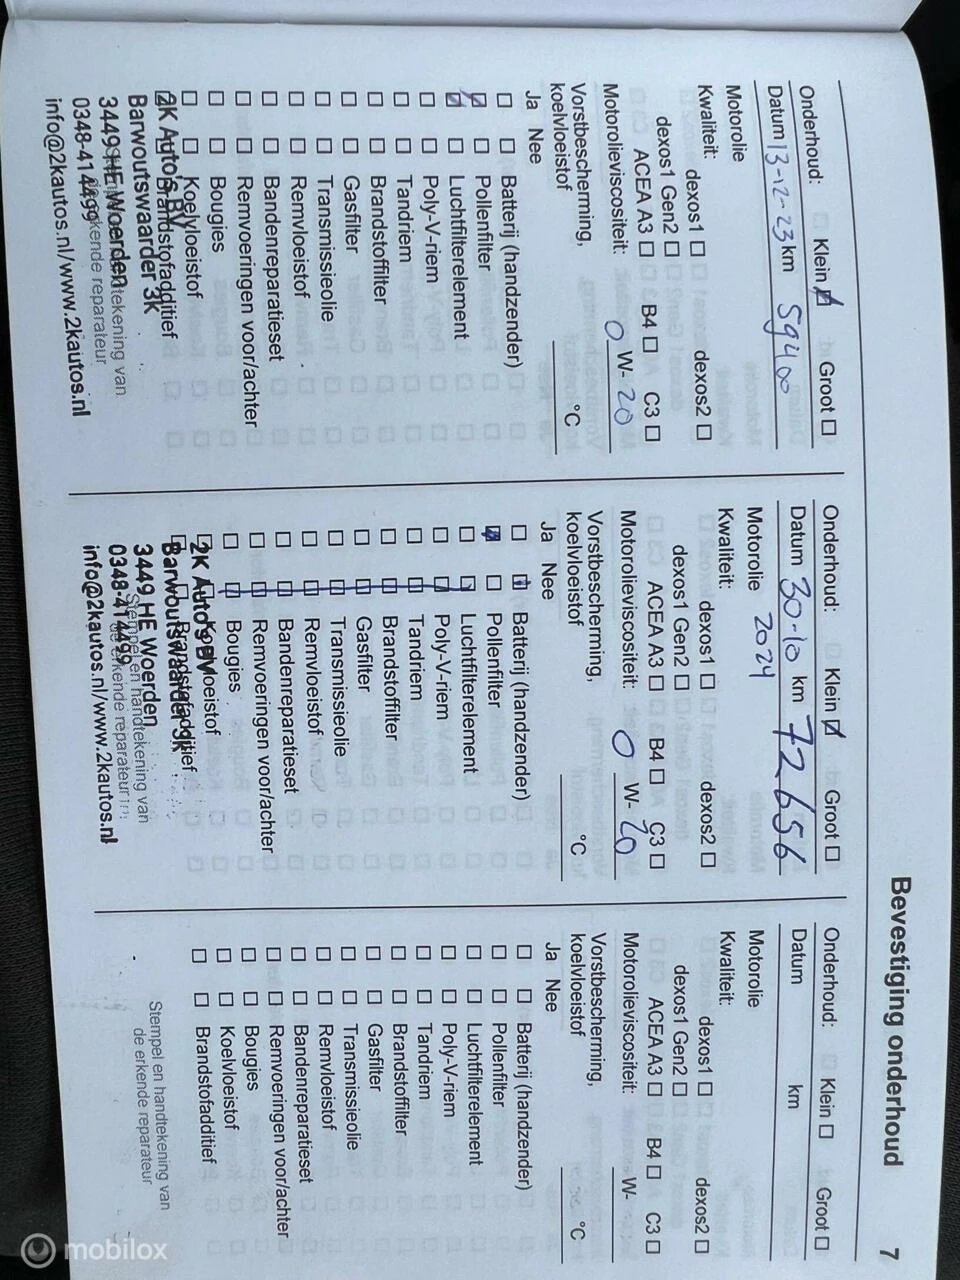 Bevestiging onderhoud 7
Onderhoud: Klein ☑ Groot ☐
Datum 13-12-23 km 59400
Motorolie
Kwaliteit: dexos1 ☐ dexos2 ☐
dexos1 Gen2 ☐
ACEA A3 ☐ B4 ☐ C3 ☐
Motorolieviscositeit: 0 W- 20
Vorstbescherming,
koelvloeistof °C
Ja Nee
☐ ☐ Batterij (handzender)
☑ ☐ Pollenfilter
☑ ☐ Luchtfilterelement
☐ ☐ Poly-V-riem
☐ ☐ Tandriem
☐ ☐ Brandstoffilter
☐ ☐ Gasfilter
☐ ☐ Transmissieolie
☐ ☐ Remvloeistof
☐ ☐ Bandenreparatieset
☐ ☐ Remvoeringen voor/achter
☐ ☐ Bougies
☐ ☐ Koelvloeistof
Brandstofadditief
2K Auto's BV
Barwoutswaarder 3K
3449 HE Woerden
0348-414499
info@2kautos.nl/www.2kautos.nl
Onderhoud: Klein ☑ Groot ☐
Datum 30-10 km 72.656
Motorolie 2024
Kwaliteit: dexos1 ☐ dexos2 ☐
dexos1 Gen2 ☐
ACEA A3 ☐ B4 ☐ C3 ☐
Motorolieviscositeit: 0 W- 20
Vorstbescherming,
koelvloeistof °C
Ja Nee
☐ ☑ Batterij (handzender)
☑ ☐ Pollenfilter
☐ ☑ Luchtfilterelement
☐ ☑ Poly-V-riem
☐ ☑ Tandriem
☐ ☑ Brandstoffilter
☐ ☑ Gasfilter
☐ ☑ Transmissieolie
☐ ☑ Remvloeistof
☐ ☑ Bandenreparatieset
☐ ☑ Remvoeringen voor/achter
☐ ☑ Bougies
Koelvloeistof
Brandstofadditief
2K Auto's BV
Barwoutswaarder 3K
3449 HE Woerden
0348-414499
info@2kautos.nl/www.2kautos.nl
Stempel en handtekening van
de erkende reparateur
Onderhoud: Klein ☐ Groot ☐
Datum km
Motorolie
Kwaliteit: dexos1 ☐ dexos2 ☐
dexos1 Gen2 ☐
ACEA A3 ☐ B4 ☐ C3 ☐
Motorolieviscositeit: W-
Vorstbescherming,
koelvloeistof °C
Ja Nee
☐ ☐ Batterij (handzender)
☐ ☐ Pollenfilter
☐ ☐ Luchtfilterelement
☐ ☐ Poly-V-riem
☐ ☐ Tandriem
☐ ☐ Brandstoffilter
☐ ☐ Gasfilter
☐ ☐ Transmissieolie
☐ ☐ Remvloeistof
☐ ☐ Bandenreparatieset
☐ ☐ Remvoeringen voor/achter
☐ ☐ Bougies
☐ ☐ Koelvloeistof
☐ ☐ Brandstofadditief
Stempel en handtekening van
de erkende reparateur
mobilox